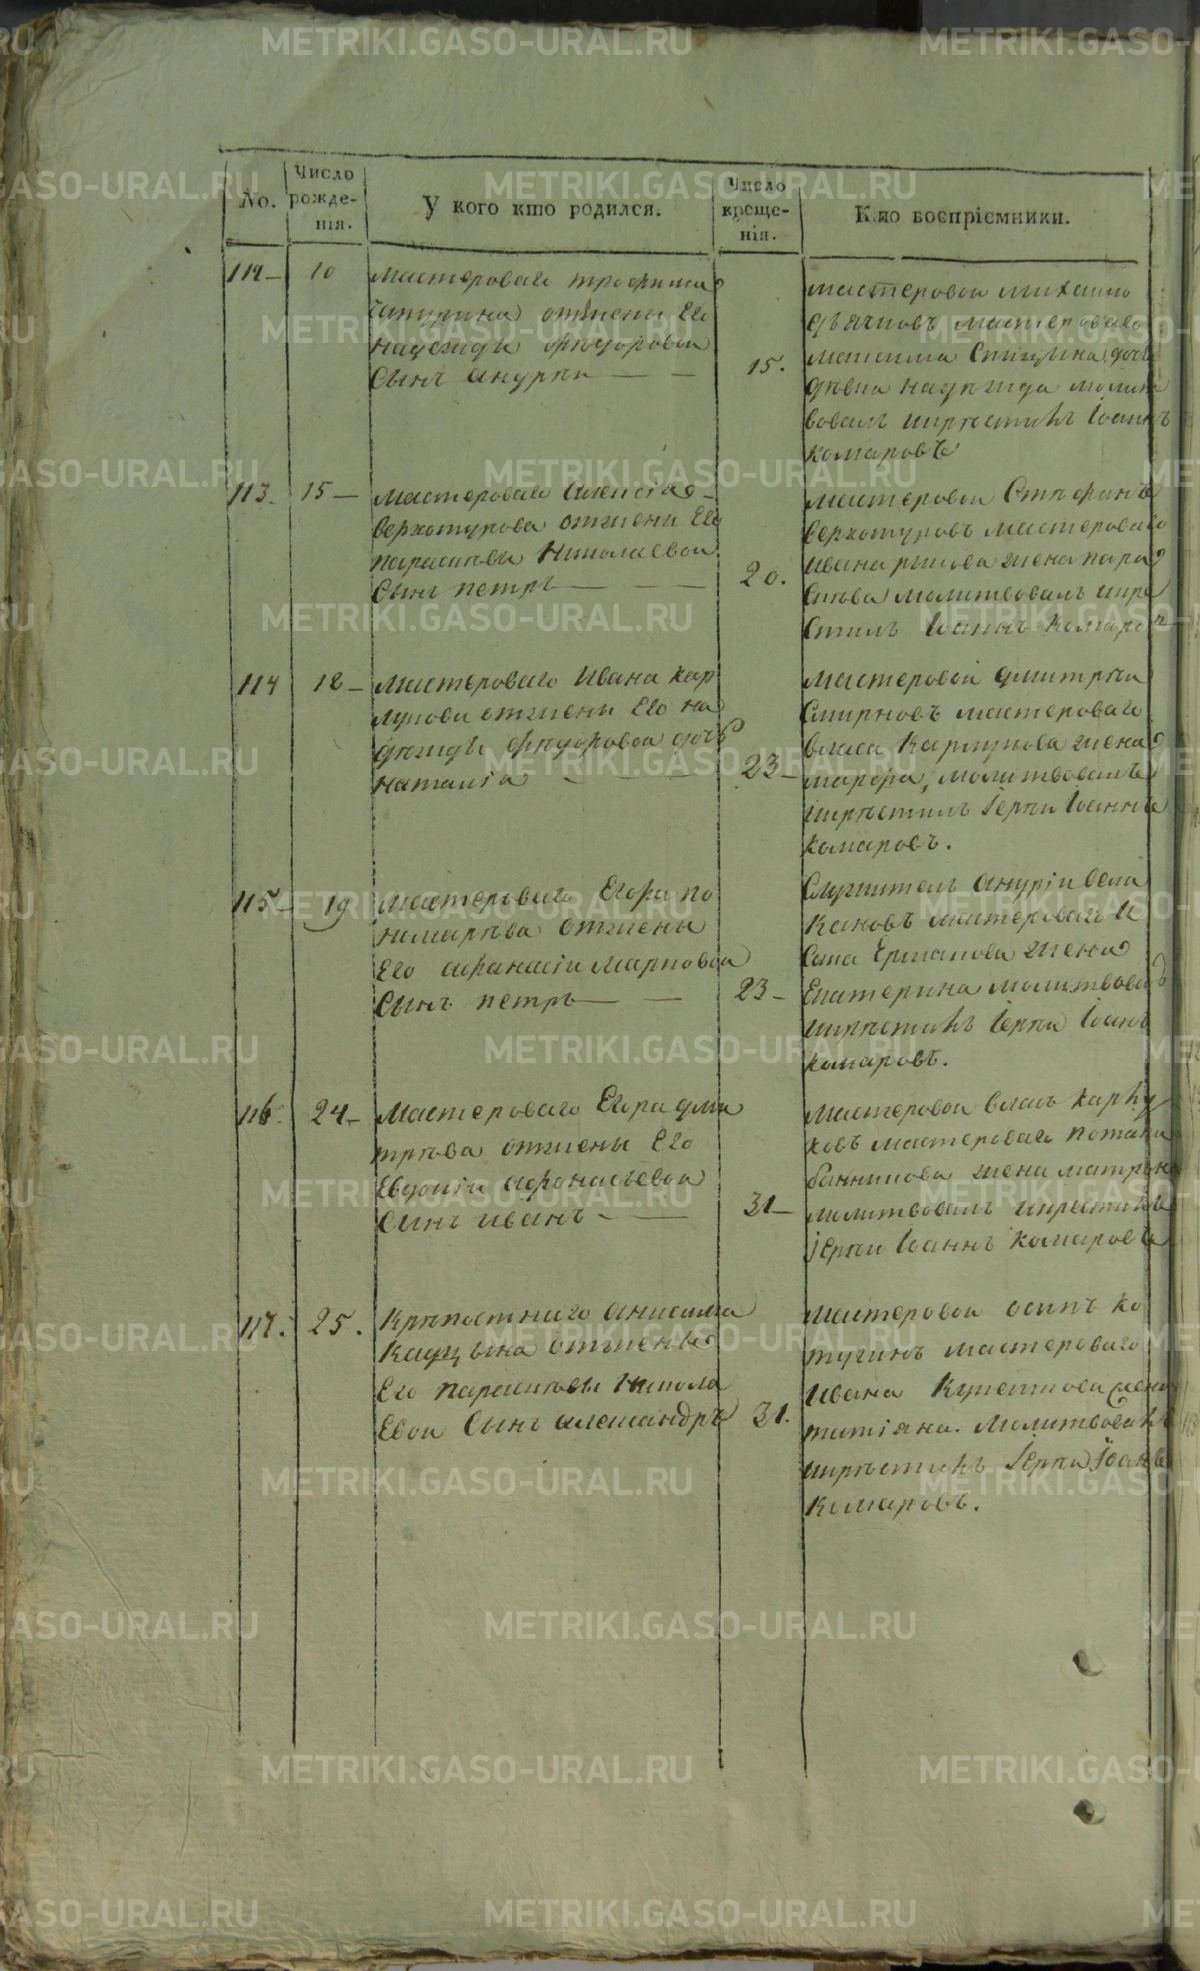 No.
Число рожде-нія.
У кого кто родился.
Число креще-нія.
Кто воспріемники.
112 — 10
Мастероваго трофима
Чапурина отжены Его
надежды фѣодоровой
Сынъ Андрѣй — —
15.
мастеровои михаило
мастероваго
максима Спицына дочь
дѣвка надѣжда молит
вовалъ икрѣстилъ Іоаннъ
комаровъ
113. 15 —
Мастероваго Алексѣя
верхотурова отжены Его
парасковьи Николаевой
Сынъ петръ — —
20.
мастеровои Стѣфанъ
верхотуровъ мастероваго
ивана рыкова жена пара
сковья молитвовалъ икре
стилъ Іоаннъ Комаров
114 12 —
Мастероваго Ивана кар
пукова отжены Его на
дѣжды фѣодоровой дочь
наталія — — —
23 —
мастеровой дмитрѣй
Смирновъ мастероваго
власа Карпукова жена
марфа, молитвовалъ
икрѣстилъ Іерѣй Іоаннъ
комаровъ.
115 — 19
Мастероваго Егора по
номарѣва отжены
Его афанасіи марковой
Сынъ петръ — —
23 —
Служитель андрѣй вели
кановъ мастероваго И
сака Ермакова жена
Екатерина молитвова
икрѣстилъ Іерѣй Іоанъ
комаровъ.
116. 24 —
Мастероваго Егора дми
трѣва отжены Его
Евдокіи афонасьевой
Сынъ иванъ — —
31 —
Мастеровои власъ карпу
ковъ мастероваго потапа
банникова жена матрона
молитвовалъ икрестилъ
іерѣй Іоаннъ комаровъ
117. 25.
Крѣпостнаго анисима
Кадцына отжены
Его парасковьи Никола
Евой Сынъ александръ
31.
мастеровои осипъ ко
тугинъ мастероваго
Ивана жена
татіяна. Молитвовалъ
икрѣстилъ Іерѣй Іоанъ
Комаровъ.
METRIKI.GASO-URAL.RU